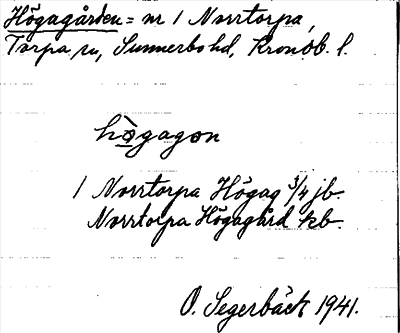 Högagården = nr 1 Norrtorpa,
Torpa sn, Sunnerbo hd, Kronob. l.
hògagon
1 Norrtorpa Högag 3/4 jb.
Norrtorpa Högagård kb.
O. Segerbäck 1941.